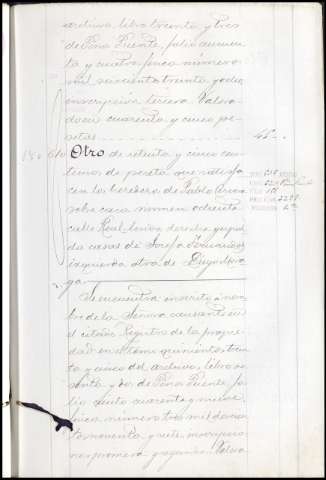 archivo, libro treinta y tres
de Pino Puente, folio cincuen
ta y cuatro, finca número
mil seiscientos treinta y dos
inscripción tercera. Valora
do en cuarenta y cinco pe
setas 45
Otro de setenta y cinco cen
timos de peseta que satisfa
cen los herederos de Pablo
sobre casa número ochenta
calle Real, linda derecha
da casas de Josefa
izquierda otra de
ga.
Se encuentra inscrito á nom
bre de la Señora causante en
el citado Registro de la propie
dad en el tomo quinientos trein
ta y cinco del archivo, libro se
senta y dos de Pino Puente, fo
lio ciento cuarenta y nueve
finca número tres mil doscien
tos noventa y siete, inscripcio
nes primera y segunda. Valora